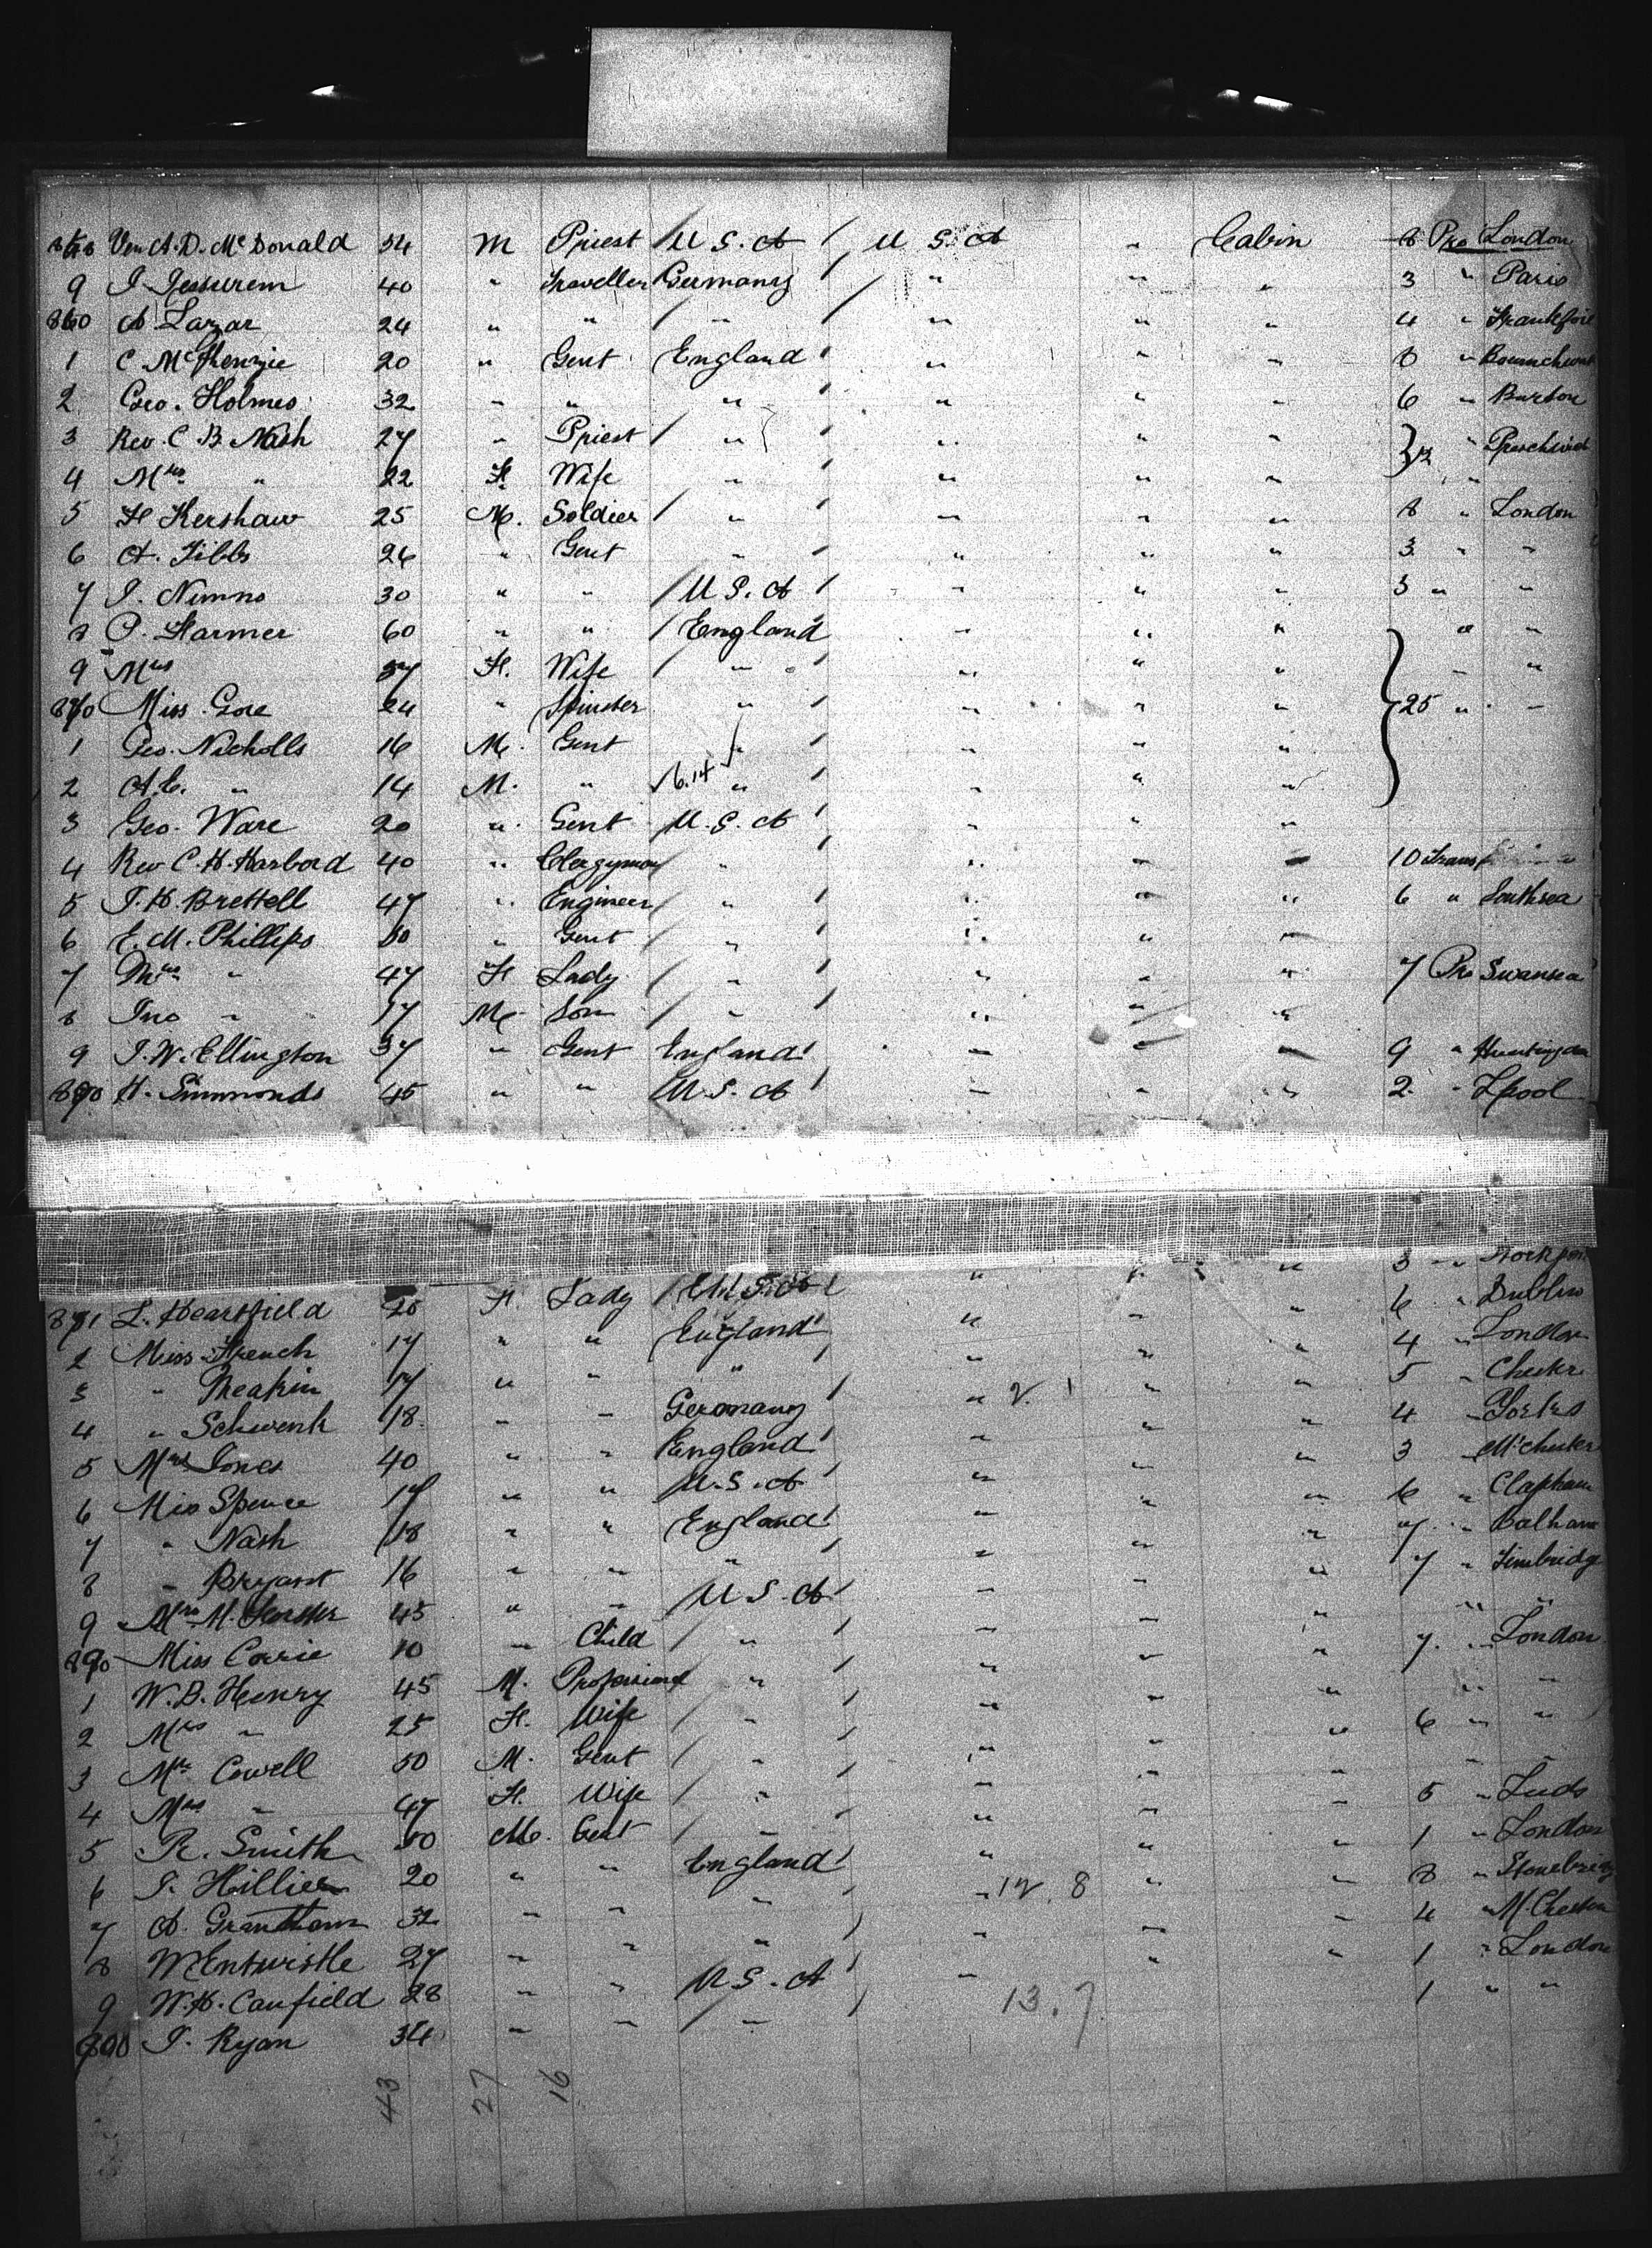 858 Ven A. D. McDonald 54 M Priest U S. A U S. A " Cabin 8 Pro London
9 I Jessurem 40 " Traveller Germany " " " 3 " Paris
860 A Lazar 24 " " " " " " 4 "
1 C. McKenzie 20 " Gent England " " " 8 "
2 Geo. Holmes 32 " " " " " " 6 " Burton
3 Rev. C. B. Nash 27 " Priest " " " " 12 "
4 Mrs " 22 F. Wife " " " " "
5 H Kershaw 25 M. Soldier " " " " 8 " London
6 A. Tibbs 26 " Gent " " " " 3 " "
7 J. Nimmo 30 " " U S. A " " " 3 " "
8 P. Farmer 60 " " England " " " " "
9 Mrs F. Wife " " " " " "
870 Miss Gore 24 " Spinster " " " " 25 " "
1 Geo. Nicholls 16 M. Gent " " " "
2 A. E. " 14 M. " 6.14 " " " "
3 Geo. Ware 20 " Gent U. S. A " " "
4 Rev C. H. Harbord 40 " Clergyman " " " " 10 Trans
5 T. H. Brettell 47 " Engineer " " " " 6 " Southsea
6 E. M. Phillips 50 " Gent " " " "
7 Mrs " 47 F Lady " " " " 7 Pro Swansea
8 Jno " 17 M. Son " " " "
9 J. W. Ellington 37 " Gent England " " " 9 " Huntingdon
H. Simmonds 45 " " U. S. A " " " 2 " Lpool
3 " Stockport
L. Hearsfield F. Lady U. S. A " " " 6 " Dublin
2 Miss French 17 " " England " " " 4 " London
3 " Meakin 17 " " " " " " 5 " Chester
4 " Schwenk 18 " " Germany " 2. 1 " " 4 " Yorks
5 Mrs Jones 40 " " England " " " 3 " M'chester
6 Miss Spence 17 " " U. S. A " " " 6 " Clapham
7 " Nash 18 " " England " " " 7 " Balham
8 " Bryant 16 " " " " " " 7 "
9 Mrs M. Forster 45 " " U. S. A " " " " "
Miss Carrie 10 " Child " " " " 7. " London
1 W. D. Henry 45 M. Professional " " " " " "
2 Mrs " 25 F. Wife " " " " 6 " "
3 Mr Cowell 50 M. Gent " " " " " "
4 Mrs " 47 F. Wife " " " " 5 " Leeds
5 R. Smith 50 M. Gent " " " " 1 " London
6 J. Hillier 20 " " England " 12. 8 " " 8 "
7 A. Grantham 32 " " " " " " 4 " M.Chester
8 W Enturstle 27 " " " " " " 1 " London
9 W. H. Canfield 28 " " U S. A " " " 1 " "
900 J. Ryan 34 " " " 13. 7
43 27 16